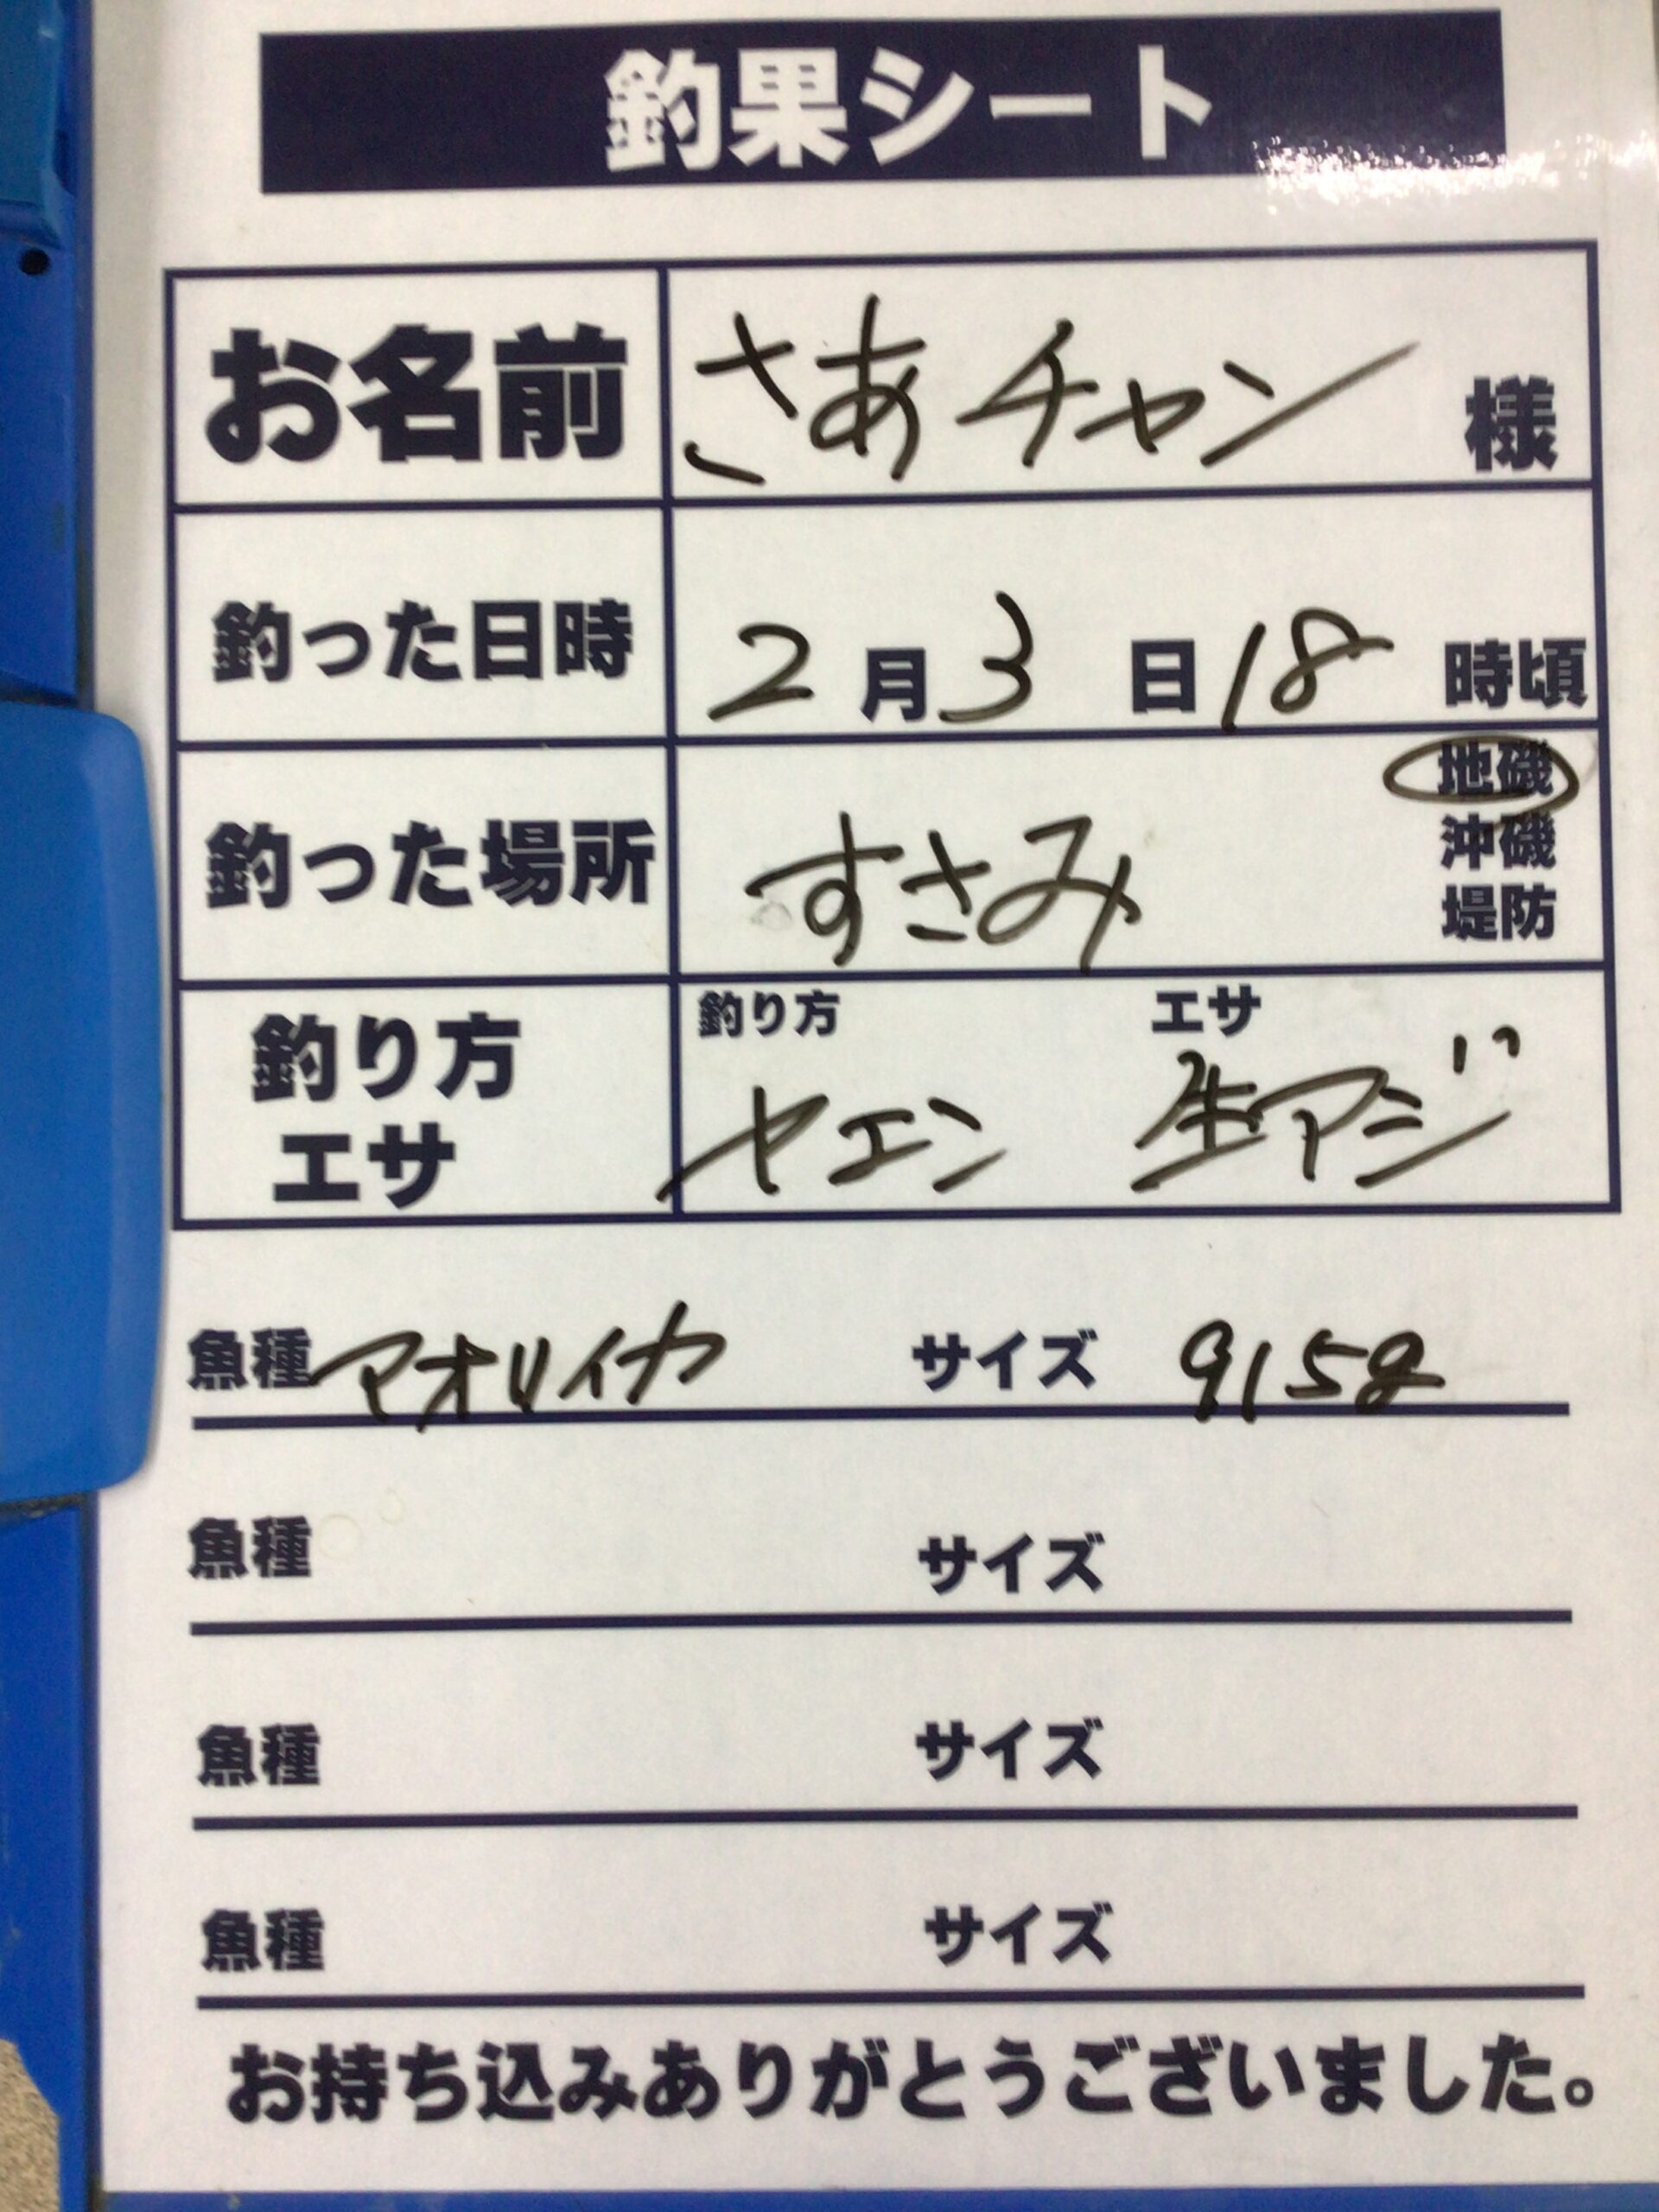 釣果シート
お名前 さあチャン 様
釣った日時 2月3日18時頃
地磯
釣った場所 すさみ 沖磯
堤防
釣り方 エサ
釣り方
エサ ヤエン 生アジ
魚種 アオリイカ サイズ 915g
魚種 サイズ
魚種 サイズ
魚種 サイズ
お持ち込みありがとうございました。